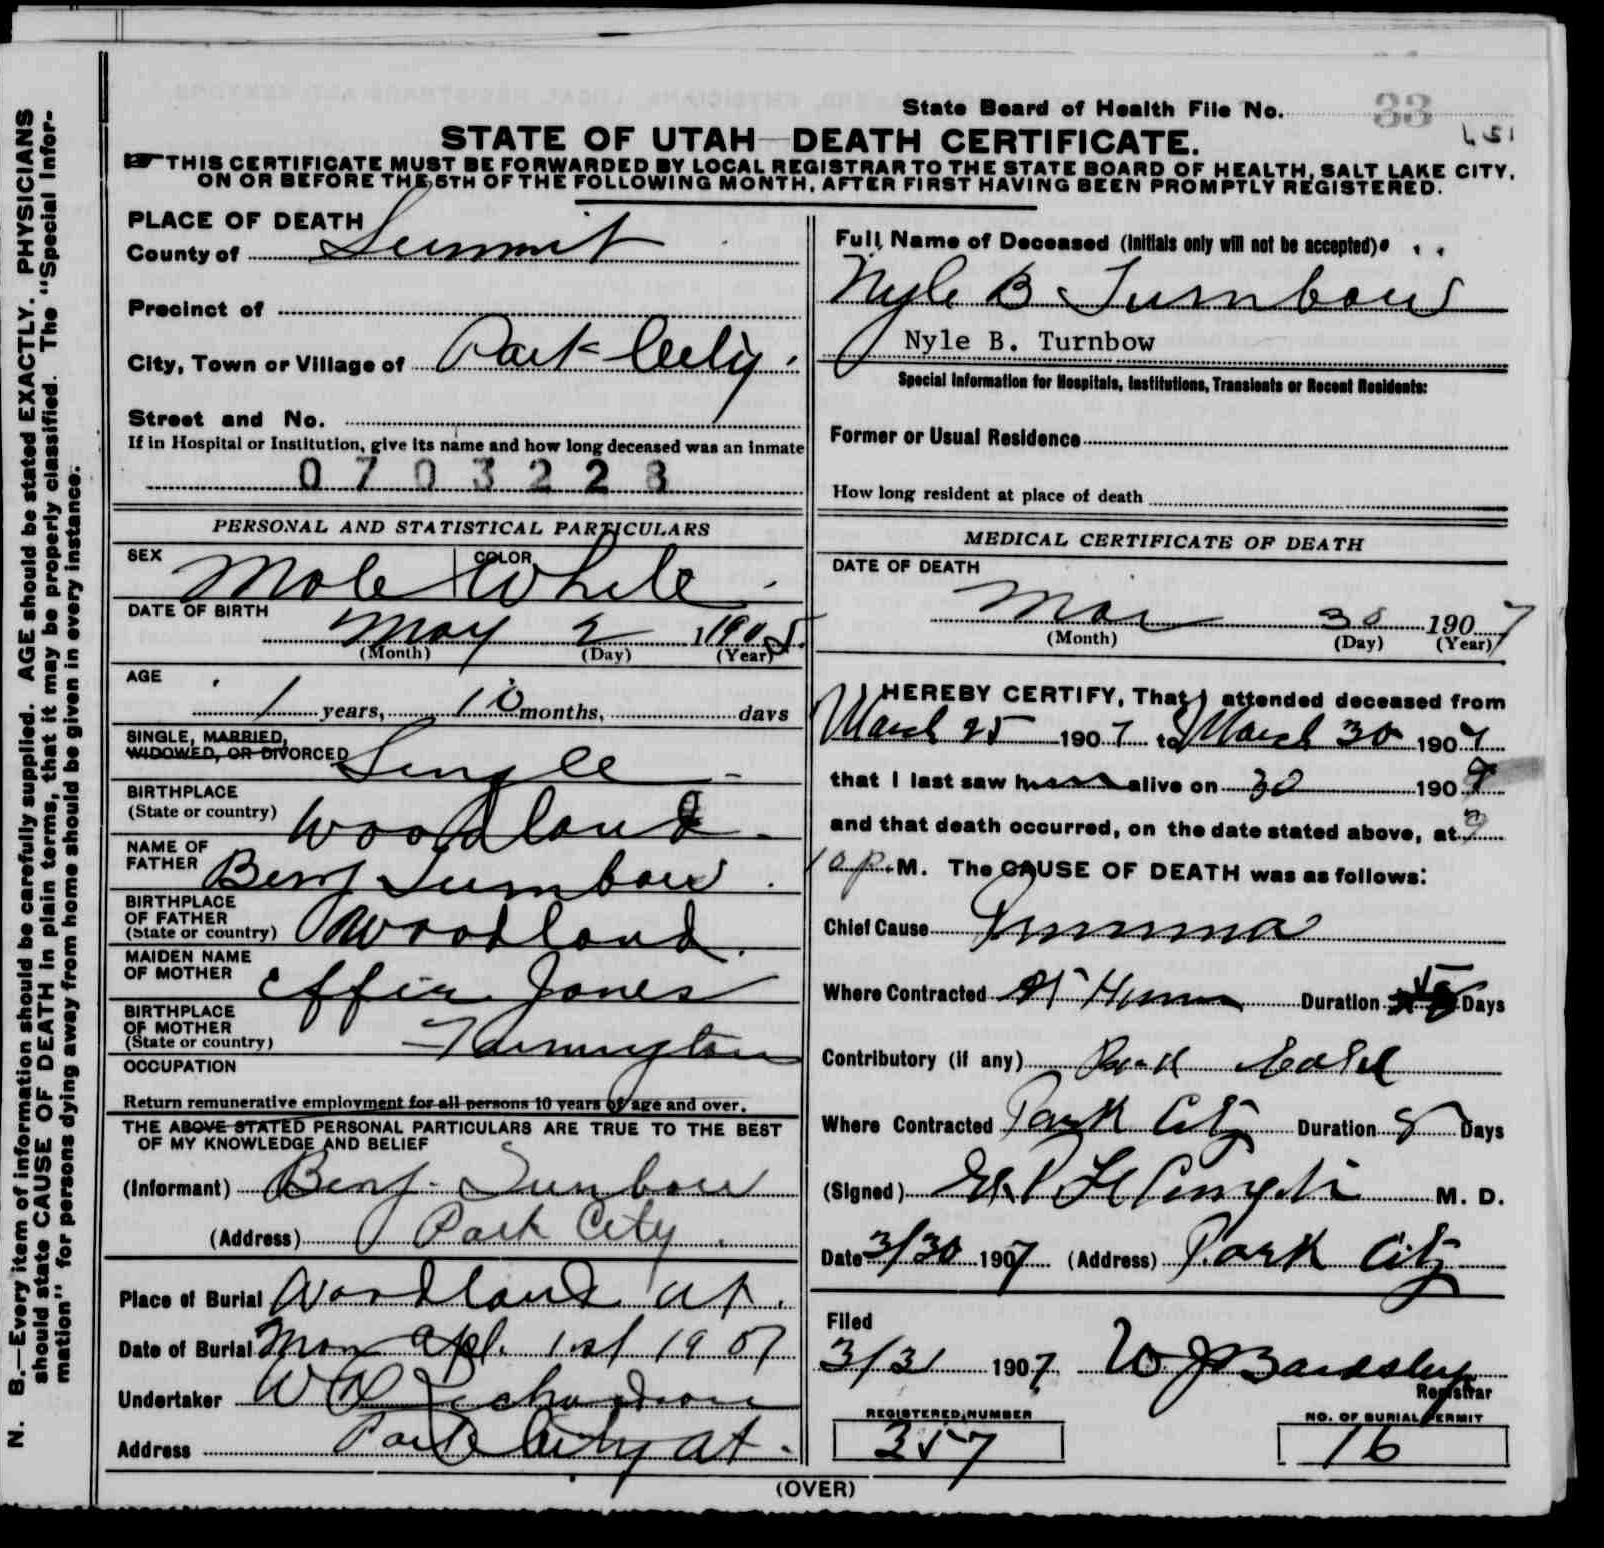 State Board of Health File No. 33
151
STATE OF UTAH—DEATH CERTIFICATE.
THIS CERTIFICATE MUST BE FORWARDED BY LOCAL REGISTRAR TO THE STATE BOARD OF HEALTH, SALT LAKE CITY,
ON OR BEFORE THE 5TH OF THE FOLLOWING MONTH, AFTER FIRST HAVING BEEN PROMPTLY REGISTERED.
N. B.—Every item of information should be carefully supplied. AGE should be stated EXACTLY. PHYSICIANS
should state CAUSE OF DEATH in plain terms, that it may be properly classified. The "Special Infor-
mation" for persons dying away from home should be given in every instance.
PLACE OF DEATH
County of Summit
Precinct of
City, Town or Village of Park City
Street and No.
If in Hospital or Institution, give its name and how long deceased was an inmate
0703228
PERSONAL AND STATISTICAL PARTICULARS
SEX Male COLOR White
DATE OF BIRTH
May 2 1905
(Month) (Day) (Year)
AGE
1 years, 10 months, days
SINGLE, MARRIED,
WIDOWED, OR DIVORCED Single
BIRTHPLACE
(State or country) Woodland
NAME OF
FATHER Benj Turnbow
BIRTHPLACE
OF FATHER
(State or country) Woodland
MAIDEN NAME
OF MOTHER Effie Jones
BIRTHPLACE
OF MOTHER
(State or country) Farmington
OCCUPATION
Return remunerative employment for all persons 10 years of age and over.
THE ABOVE STATED PERSONAL PARTICULARS ARE TRUE TO THE BEST
OF MY KNOWLEDGE AND BELIEF
(Informant) Benj. Turnbow
(Address) Park City
Place of Burial Woodland Ut.
Date of Burial Mon Apl. 1st 1907
Undertaker W Richardson
Address Park City Ut.
Full Name of Deceased (Initials only will not be accepted)
Nyle B Turnbow
Nyle B. Turnbow
Special Information for Hospitals, Institutions, Transients or Recent Residents:
Former or Usual Residence
How long resident at place of death
MEDICAL CERTIFICATE OF DEATH
DATE OF DEATH
Mar 30 1907
(Month) (Day) (Year)
I HEREBY CERTIFY, That I attended deceased from
March 25 1907 to March 30 1907
that I last saw him alive on 30 1907
and that death occurred, on the date stated above, at
10 P.M. The CAUSE OF DEATH was as follows:
Chief Cause Pneumonia
Where Contracted At Home Duration 5 Days
Contributory (if any)
Where Contracted Park City Duration 8 Days
(Signed) M. D.
Date 3/30 1907 (Address) Park City
Filed
3/31 1907 W J Bardsley
Registrar
REGISTERED NUMBER
357
NO. OF BURIAL PERMIT
16
(OVER)